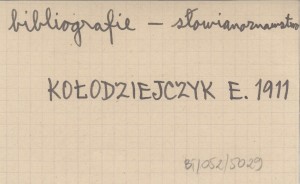 bibliografie – słowianoznawstwo
KOŁODZIEJCZYK E. 1911
BJ/052/5029